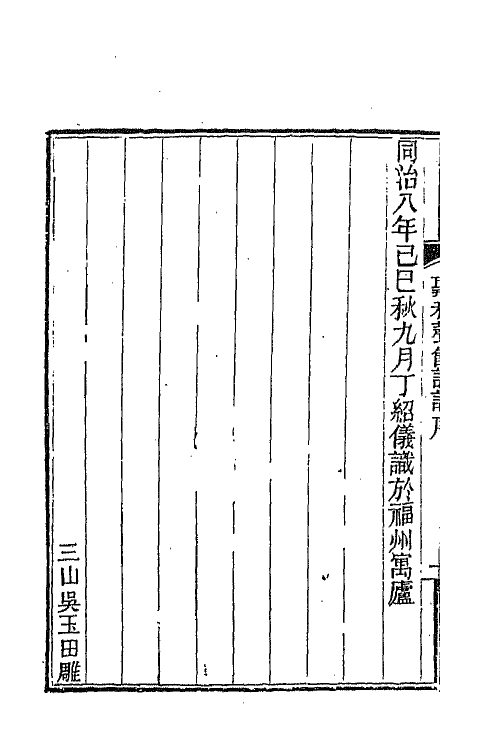 同治八年己巳秋九月丁紹儀識於福州寓廬
三山吳玉田雕